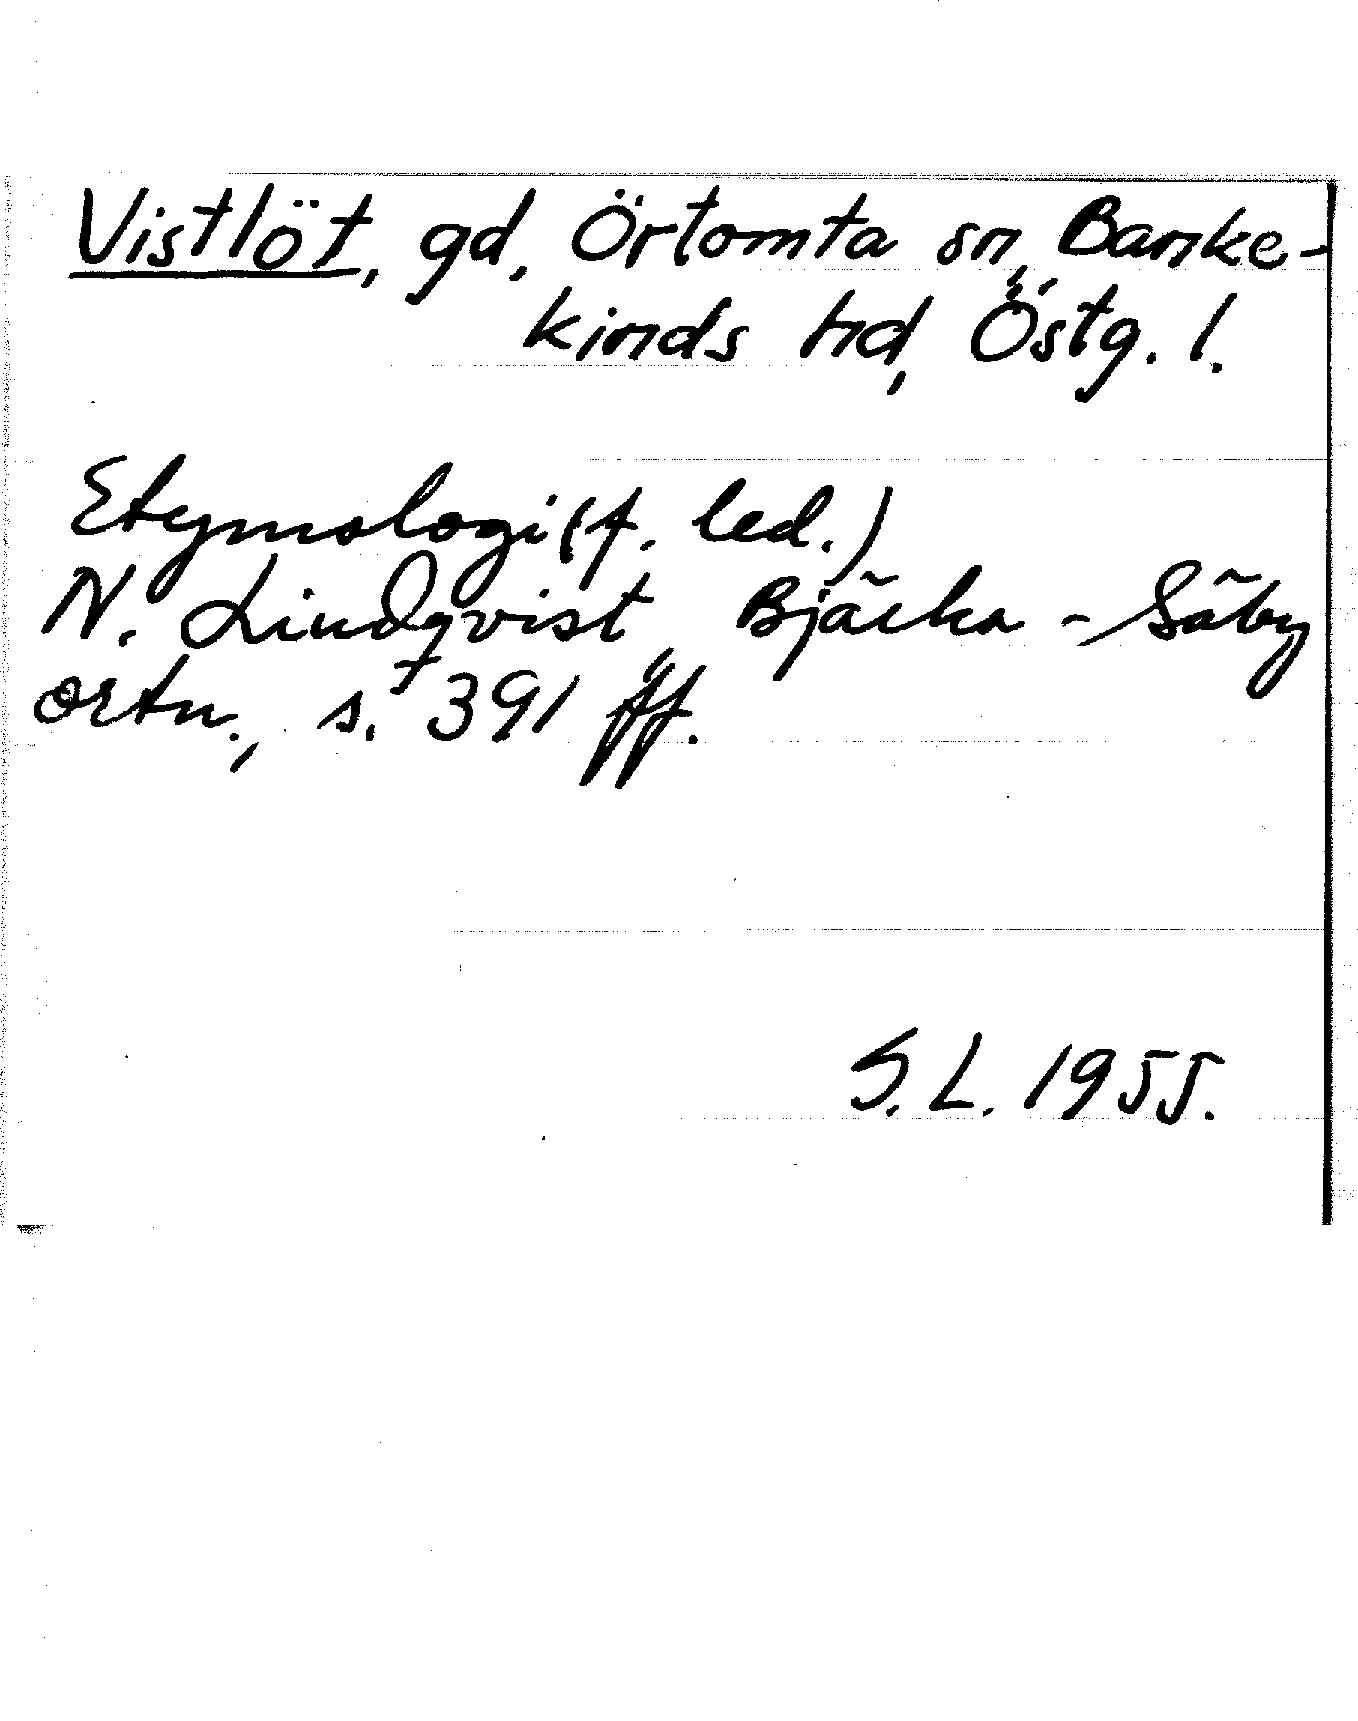 Vistlöt, gd, Örtomta sn, Banke-
kinds hd, Östg. l.
Etymologi (f. led.)
N. Lindqvist, Bjärka-Säby
ortn., s. 391 ff.
S. L. 1955.